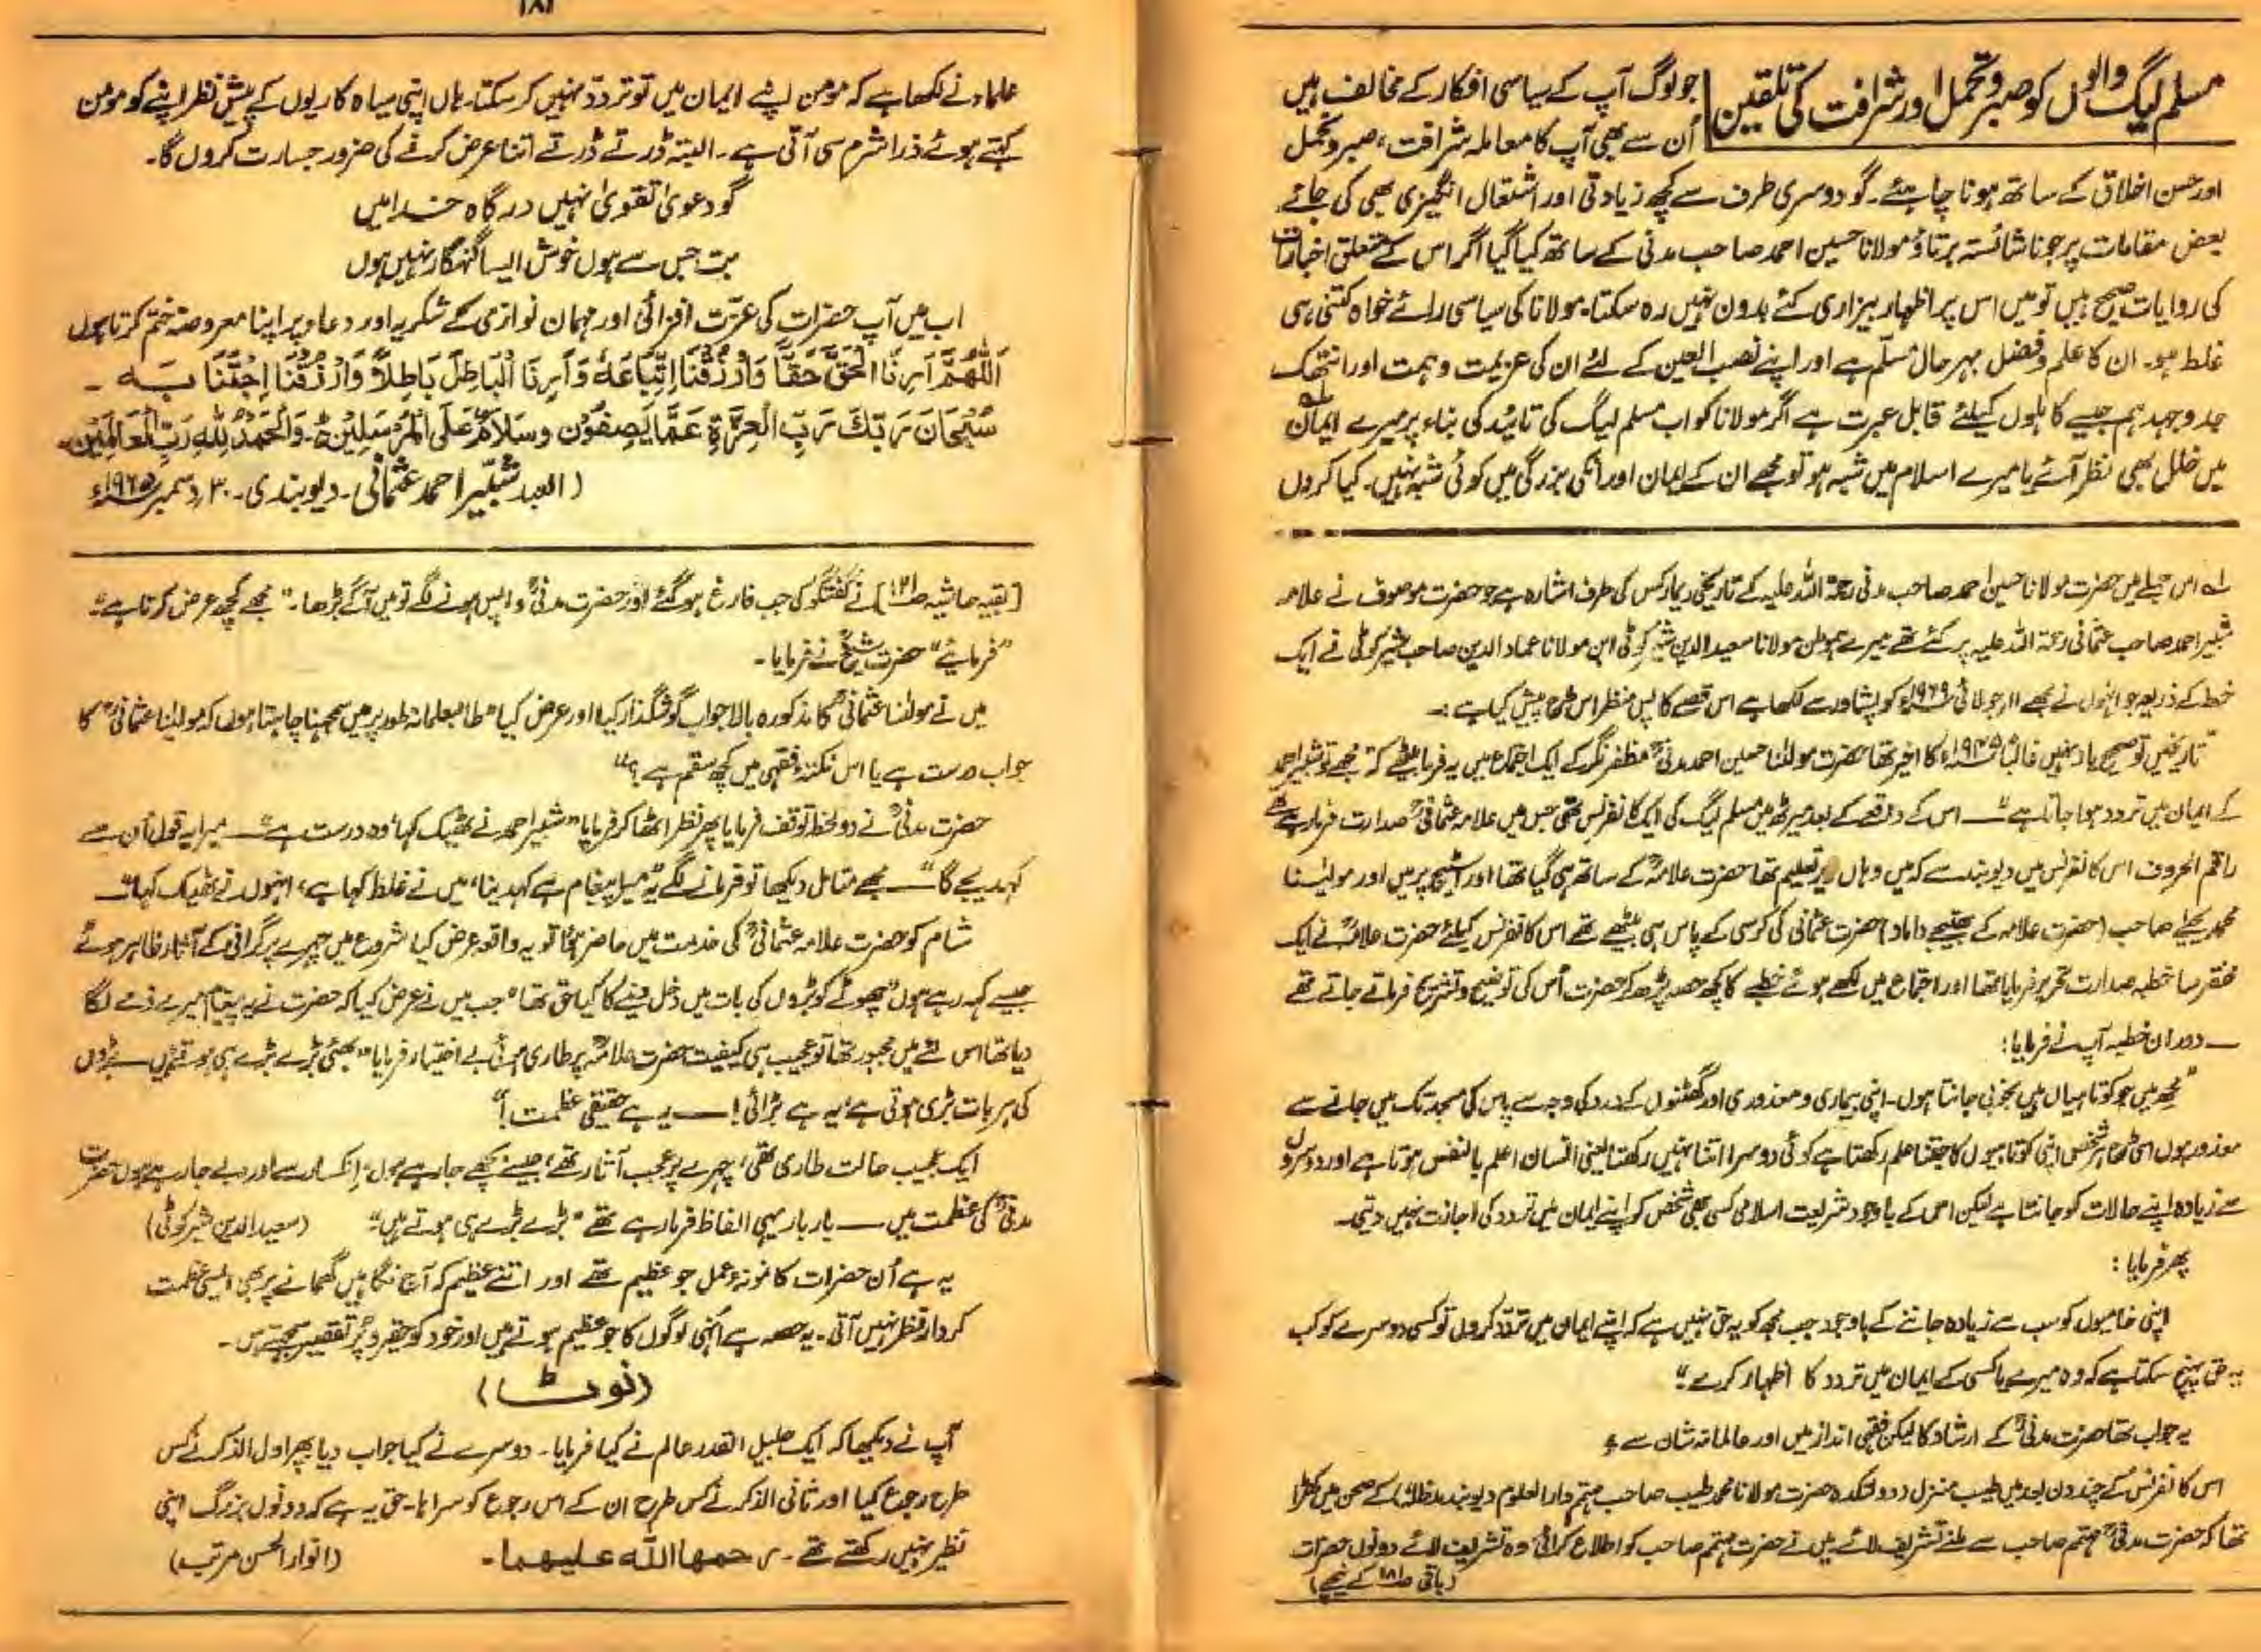 مسلم لیگ والوں کو صبر و تحمل اور شرافت کی تلقین
جو لوگ آپ کے سیاسی افکار کے مخالف ہیں
اُن سے بھی آپ کا معاملہ شرافت، صبر و تحمل
اور حسن اخلاق کے ساتھ ہونا چاہئے۔ گو دوسری طرف سے کچھ زیادتی اور اشتعال انگیزی بھی کی جائے
بعض مقامات پر جو ناشائستہ برتاؤ مولانا حسین احمد صاحب مدنی کے ساتھ کیا گیا اگر اس کے متعلق اخبارات
کی روایات صحیح ہیں تو میں اس پر اظہار بیزاری کئے بدون نہیں رہ سکتا۔ مولانا کی سیاسی رائے خواہ کتنی ہی
غلط ہو۔ ان کا علم و فضل بہر حال مسلّم ہے اور اپنے نصب العین کے لئے ان کی عزیمت و ہمت اور انتھک
جد و جہد ہم جیسے کاہلوں کیلئے قابل عبرت ہے اگر مولانا کو اب مسلم لیگ کی تائید کی بناء پر میرے ایمان لہ
میں خلل بھی نظر آئے یا میرے اسلام میں شبہ ہو تو مجھے ان کے ایمان اور انکی بزرگی میں کوئی شبہ نہیں۔ کیا کروں
لہ اس جملے میں حضرت مولانا حسین احمد صاحب مدنی رحمۃ اللہ علیہ کے تاریخی ریمارکس کی طرف اشارہ ہے جو حضرت موصوف نے علامہ
شبیر احمد صاحب عثمانی رحمۃ اللہ علیہ پر کئے تھے میرے ہموطن مولانا سعید الدین شیر کوٹی ابن مولانا عماد الدین صاحب شیر کوٹی نے ایک
خط کے ذریعہ جو انہوں نے مجھے ۱۱ر جولائی ۱۹۶۹ء کو پشاور سے لکھا ہے اس قصے کا پس منظر اس طرح پیش کیا ہے :۔
"تاریخیں تو صحیح یاد نہیں غالباً ۱۹۴۵ء کا اخیر تھا حضرت مولٰنا حسین احمد مدنیؒ مظفر نگر کے ایک اجتماع میں یہ فرما بیٹھے کہ "مجھے تو شبیر احمد
کے ایمان میں تردد ہوا جاتا ہے" — اس کے واقعے کے بعد میرٹھ میں مسلم لیگ کی ایک کانفرنس تھی جس میں علامہ عثمانیؒ صدارت فرما رہے تھے
راقم الحروف اس کانفرنس میں دیوبند سے کہ میں وہاں زیر تعلیم تھا حضرت علامہؒ کے ساتھ ہی گیا تھا اور اسٹیج پر میں اور مولیٰنا
محمد یحییٰ صاحب (حضرت علامہ کے بھتیجے داماد) حضرت عثمانی کی کرسی کے پاس ہی بیٹھے تھے اس کانفرنس کیلئے حضرت علامہؒ نے ایک
مختصر سا خطبہ صدارت تحریر فرمایا تھا اور اجتماع میں لکھے ہوئے خطبے کا کچھ حصہ پڑھ کر حضرت اُس کی توضیح و تشریح فرماتے جاتے تھے
— دوران خطبہ آپ نے فرمایا:
"مجھ میں جو کوتاہیاں ہیں بخوبی جانتا ہوں۔ اپنی بیماری و معذوری اور گھٹنوں کے درد کی وجہ سے پاس کی مسجد تک میں جانے سے
معذور ہوں اسی طرح ہر شخص اپنی کوتاہیوں کا جتنا علم رکھتا ہے کوئی دوسرا اتنا نہیں رکھتا یعنی انسان اعلم بالنفس ہوتا ہے اور دوسروں
سے زیادہ اپنے حالات کو جانتا ہے لیکن اس کے باوجود شریعت اسلامی کسی بھی شخص کو اپنے ایمان میں تردد کی اجازت نہیں دیتی۔
پھر فرمایا :
اپنی خامیوں کو سب سے زیادہ جاننے کے باوجود جب مجھ کو یہ حق نہیں ہے کہ اپنے ایمان میں تردّد کروں تو کسی دوسرے کو کب
یہ حق پہنچ سکتا ہے کہ وہ میرے یا کسی کے ایمان میں تردد کا اظہار کرے"
یہ جواب تھا حضرت مدنیؒ کے ارشاد کا لیکن فقہی انداز میں اور عالمانہ شان سے
اس کانفرنس کے چند دن بعد میں طیب منزل دولتکدہ حضرت مولانا محمد طیب صاحب مہتمم دارالعلوم دیوبند مدظلہٗ) کے صحن میں کھڑا
تھا کہ حضرت مدنیؒ مہتمم صاحب سے ملنے تشریف لائے میں نے حضرت مہتمم صاحب کو اطلاع کرائی وہ تشریف لائے دونوں حضرات
(باقی ص۱۸۱ کے نیچے)
۱۸۱
علماء نے لکھا ہے کہ مومن اپنے ایمان میں تو تردّد نہیں کر سکتا۔ ہاں اپنی سیاہ کاریوں کے پیش نظر اپنے کو مومن
کہتے ہوئے ذرا شرم سی آتی ہے۔ البتہ ڈرتے ڈرتے اتنا عرض کرنے کی ضرور جسارت کروں گا۔
گو دعویٰ تقویٰ نہیں درگاہ خدا میں
بت جس سے ہوں خوش ایسا گنہگار نہیں ہوں
اب میں آپ حضرات کی عزت افزائی اور مہمان نوازی کے شکریہ اور دعاء پر اپنا معروضہ ختم کرتا ہوں
اَللّٰھُمَّ اَرِنَا الْحَقَّ حَقًّا وَارْزُقْنَا اِتِّبَاعَهٗ وَاَرِنَا الْبَاطِلَ بَاطِلًا وَّارْزُقْنَا اِجْتِنَابَهٗ ۔
سُبْحَانَ رَبِّكَ رَبِّ الْعِزَّةِ عَمَّا يَصِفُوْنَ وَسَلَامٌ عَلَى الْمُرْسَلِيْنَ۔ وَالْحَمْدُ لِلّٰهِ رَبِّ الْعَالَمِيْنَ۔
(العبد شبّیر احمد عثمانی۔ دیوبندی۔ ۳۰ر دسمبر
[بقیہ حاشیہ ] نے گفتگو کی جب فارغ ہو گئے اور حضرت مدنیؒ واپس ہونے لگے تو میں آگے بڑھا۔ "مجھے کچھ عرض کرنا ہے"
"فرمایئے" حضرت شیخؒ نے فرمایا۔
میں نے مولٰنا عثمانیؒ کا مذکورہ بالا جواب گوشگذار کیا اور عرض کیا "طالبعلمانہ طور پر میں سمجھنا چاہتا ہوں کہ مولٰنا عثمانیؒ کا
جواب درست ہے یا اس نکتۂ فقہی میں کچھ سقم ہے؟"
حضرت مدنیؒ نے دو لحظہ توقف فرمایا پھر نظر اٹھا کر فرمایا "شبیر احمد نے ٹھیک کہا، وہ درست ہے — میرا یہ قول اُن سے
کہدیجے گا" — مجھے متامل دیکھا تو فرمانے لگے "یہ میرا پیغام ہے کہدینا، میں نے غلط کہا ہے، انہوں نے ٹھیک کہا" —
شام کو حضرت علامہ عثمانیؒ کی خدمت میں حاضر ہوا تو یہ واقعہ عرض کیا شروع میں چہرے پر گرانی کے آثار ظاہر ہوئے
جیسے کہہ رہے ہوں "چھوٹے کو بڑوں کی بات میں دخل دینے کا کیا حق تھا" جب میں نے عرض کیا کہ حضرت نے یہ پیغام میرے ذمے لگا
دیا تھا اس لئے میں مجبور تھا تو عجیب ہی کیفیت حضرت علامہؒ پر طاری ہوئی بے اختیار فرمایا "بھئی بڑے بڑے ہی ہوتے ہیں بڑوں
کی ہر بات بڑی ہوتی ہے یہ ہے بڑائی! — یہ ہے حقیقی عظمت!"
ایک عجیب حالت طاری تھی، چہرے پر عجب آثار تھے، جیسے بچھے جا رہے ہوں، انکسار سے اور دبے جا رہے ہوں حضرت
مدنیؒ کی عظمت میں — بار بار یہی الفاظ فرما رہے تھے "بڑے بڑے ہی ہوتے ہیں" (سعید الدین شیر کوٹی)
یہ ہے اُن حضرات کا نمونۂ عمل جو عظیم تھے اور اتنے عظیم کہ آج نگاہیں گھمانے پر بھی ایسی عظمت
کردار نظر نہیں آتی۔ یہ حصہ ہے اُنہی لوگوں کا جو عظیم ہوتے ہیں اور خود کو حقیر و پُر تقصیر سمجھتے ہیں۔
(نوٹ)
آپ نے دیکھا کہ ایک جلیل القدر عالم نے کیا فرمایا۔ دوسرے نے کیا جواب دیا پھر اول الذکر نے کس
طرح رجوع کیا اور ثانی الذکر نے کس طرح ان کے اس رجوع کو سراہا۔ حق یہ ہے کہ دونوں بزرگ اپنی
نظیر نہیں رکھتے تھے۔ رحمھما اللّٰہ علیھما۔ (انوار الحسن مرتب)